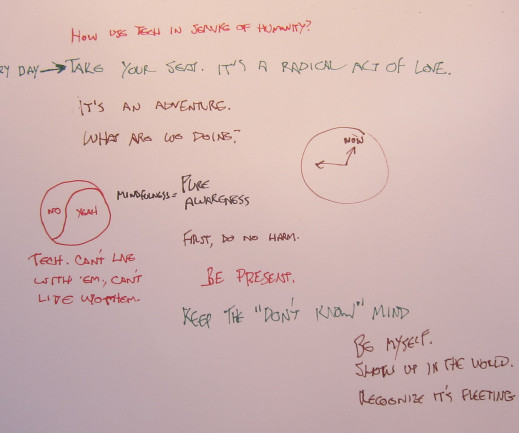 How use Tech in service of Humanity?
RY DAY → TAKE YOUR SEAT. IT'S A RADICAL ACT OF LOVE.
IT'S AN ADVENTURE.
WHAT ARE WE DOING?
NOW
NO YEAH
MINDFULNESS = PURE
AWARENESS
FIRST, DO NO HARM.
TECH. CAN'T LIVE
WITH 'EM, CAN'T
LIVE W/O THEM.
BE PRESENT.
KEEP THE "DON'T KNOW" MIND
BE MYSELF.
SHOW UP IN THE WORLD.
RECOGNIZE IT'S FLEETING